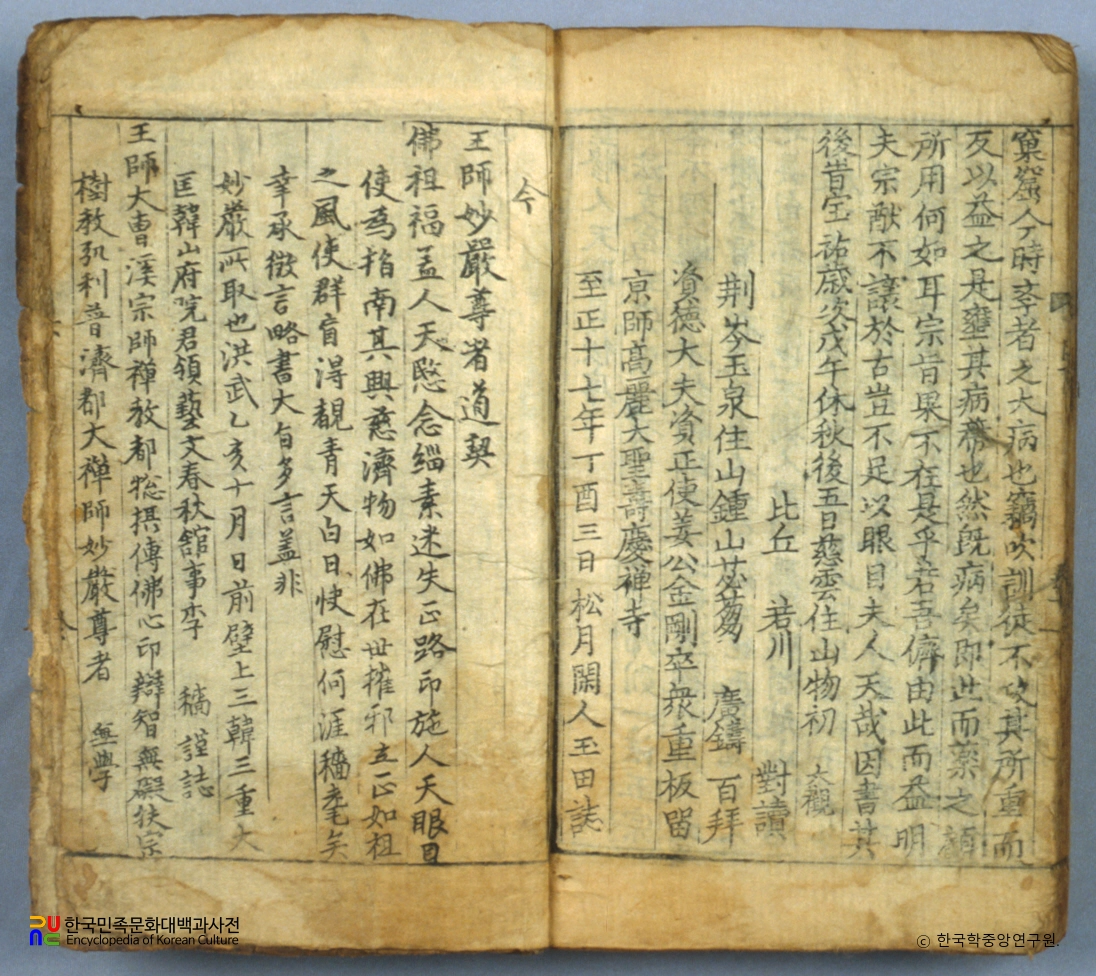 窠窟今時李者之大病也竊吹訓徒不以其所重而
反以益之是壅其病藥也然既病矣即此而藥之顧
所用何如耳宗旨果不在是乎若吾儕由此而益明
夫宗猷不讓於古豈不足以眼目夫人天哉因書其
後旹宝祐歲次戊午休秋後五日慈雲住山物初 大觀
比丘 若川 對讀
荆岑玉泉住山鍾山苾蒭 廣鑄 百拜
資德大夫資正使姜公金剛卒衆重板留
京師高麗大聖壽慶禅寺
至正十七年丁酉三日松月閑人玉田誌
今
王師妙嚴尊者道契
佛祖福盖人天愍念緇素迷失正路印施人天眼目
使為指南其興慈濟物如佛在世摧邪立正如祖
之風使群盲得覩青天白日快慰何涯穡耄矣
幸承徵言略書大旨多言盖非
妙嚴所取也洪武乙亥十月日前壁上三韓三重大
匡韓山府院君領藝文春秋館事李 穡 謹誌
王師大曹溪宗師禅教都摠摂傳佛心印辯智無礙扶宗
樹教弘利普濟都大禅師妙嚴尊者 無學
한국민족문화대백과사전
Encyclopedia of Korean Culture
© 한국학중앙연구원.